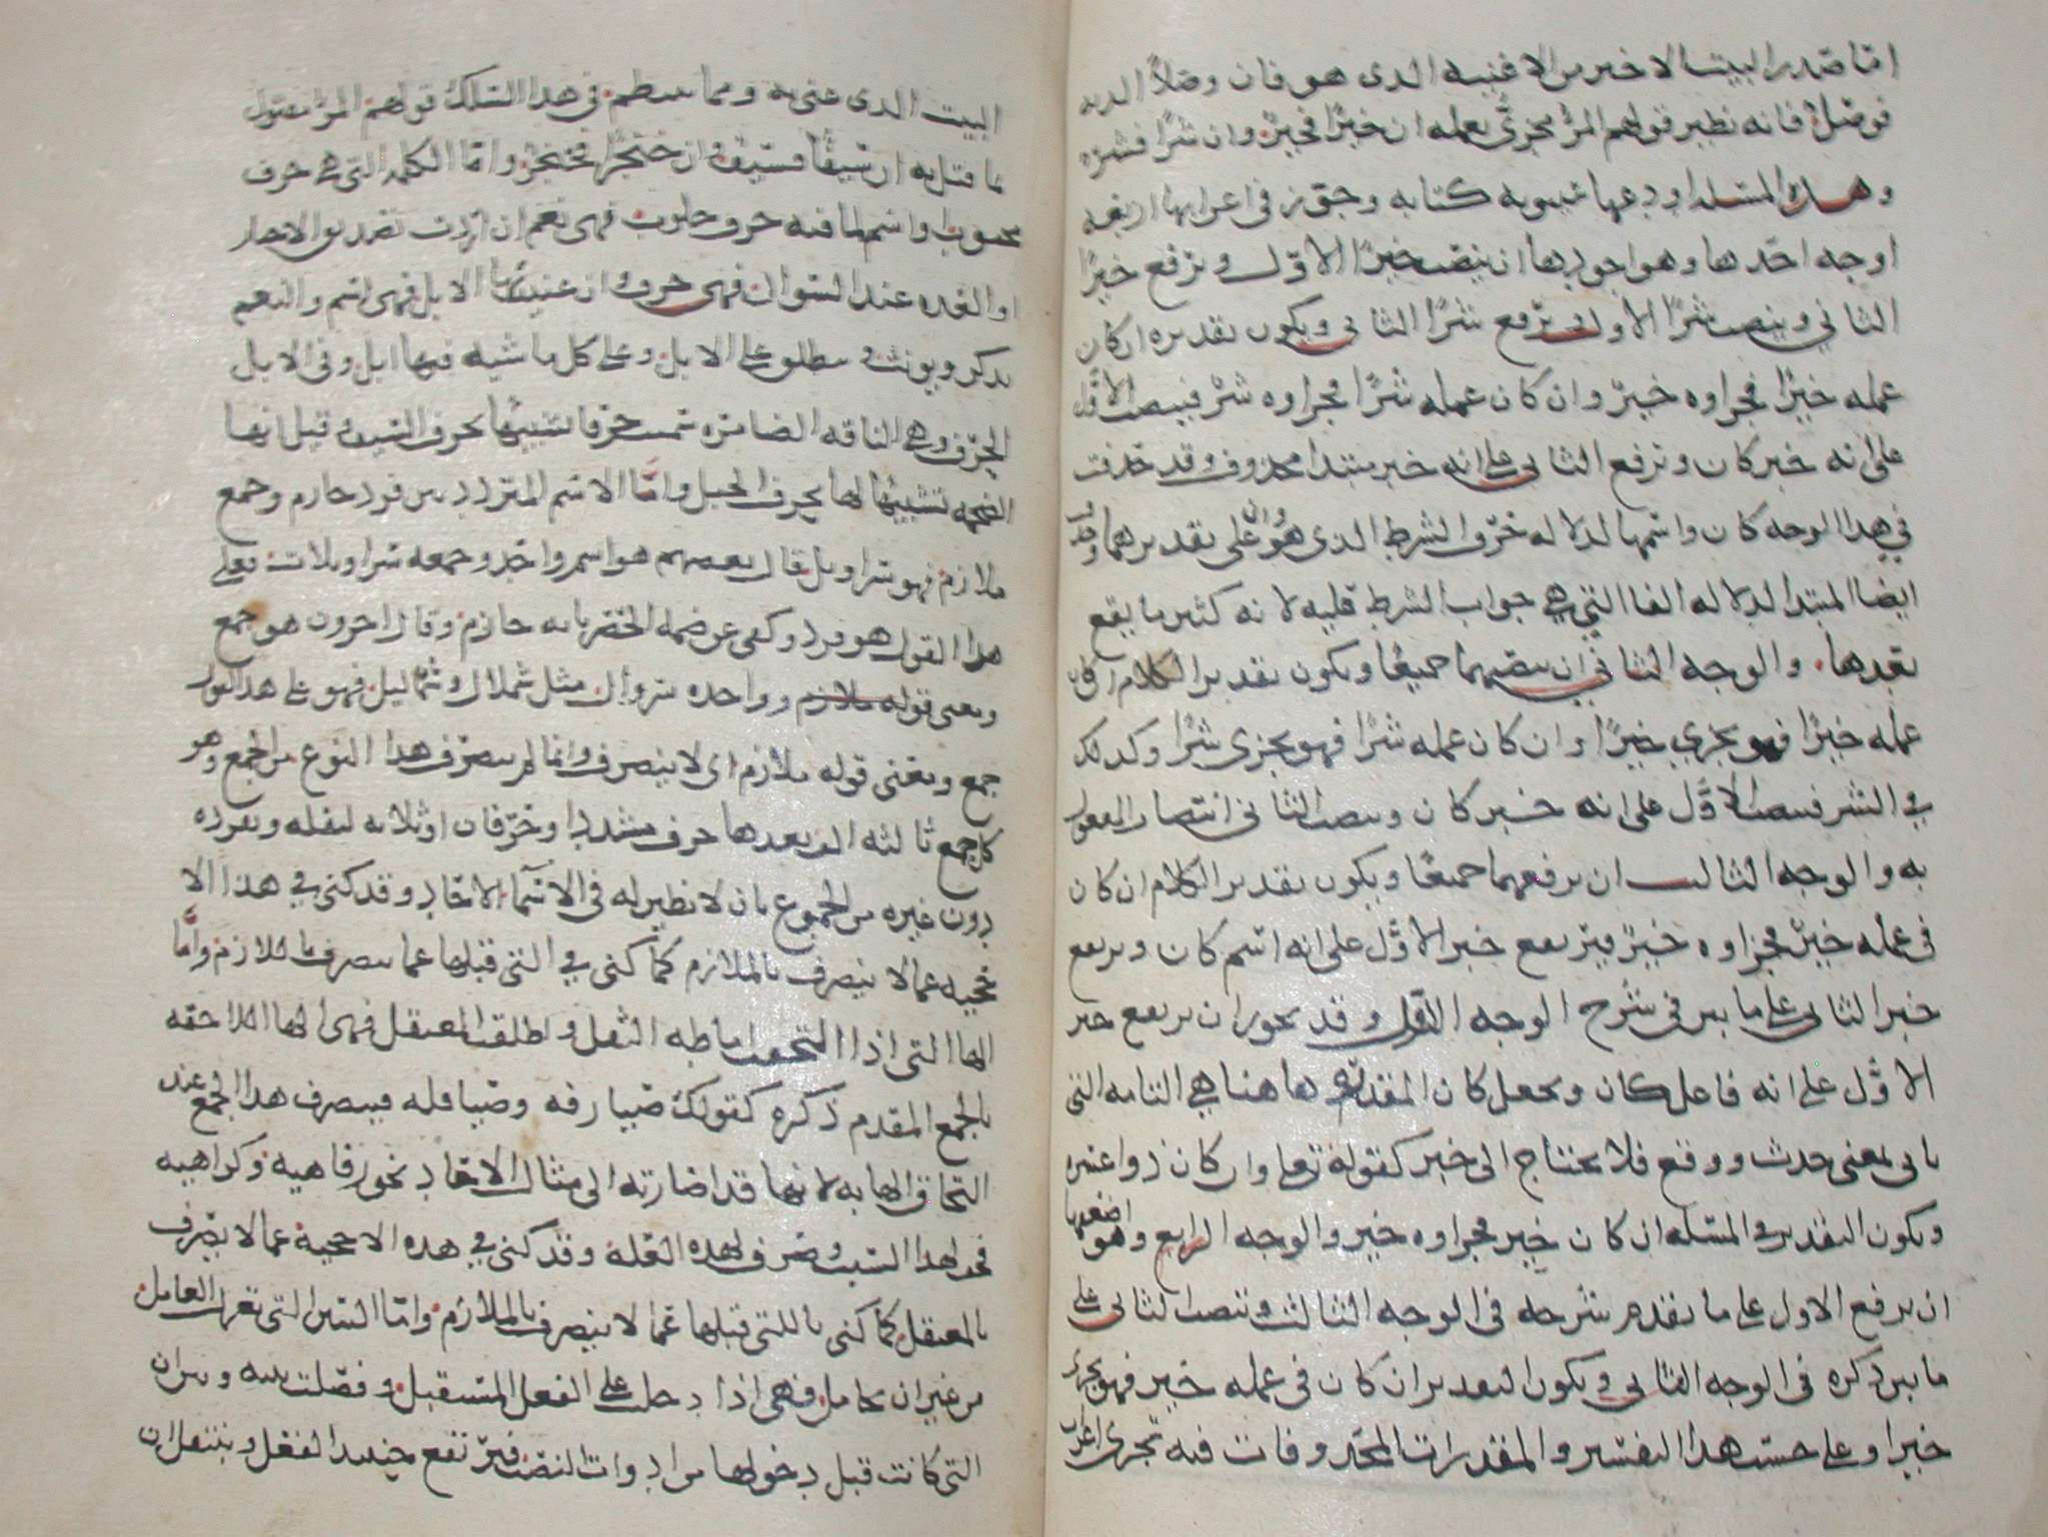 اما صدر البيت الاخير من الاغنية الذى هو فان وصلا الذ به
فوصل فانه نظير قولهم المرء مجزى بعمله ان خيرا فخير وان شرا فشر
وهذه المسئلة اودعها سيبويه كتابه وجوز فى اعرابها اربعة
اوجه احدها وهو اجودها ان ينصب خيرا الاول ويرفع خيرا
الثاني وينصب شرا الاول ويرفع شرا الثانى ويكون تقديره ان كان
عمله خيرا فجزاوه خير وان كان عمله شرا فجزاوه شر فينصب الاول
على انه خبر كان وترفع الثانى على انه خبر مبتدا محذوف وقد حذفت
في هذا الوجه كان واسمها لدلالة حرف الشرط الذى هو ان على تقديرهما وحذف
ايضا المبتدا لدلالة الفا التي هي جواب الشرط عليه لانه كثيرا ما يقع
بعدها والوجه الثاني ان تنصبهما جميعا ويكون تقدير الكلام ان كان
عمله خيرا فهو يجزى خيرا وان كان عمله شرا فهو يجزى شرا وكذلك
في الشر فينصب الاول على انه خبر كان وينصب الثانى انتصاب المفعول
به والوجه الثالث ان يرفعهما جميعا ويكون تقدير الكلام ان كان
فى عمله خير فجزاوه خير فيرتفع خير الاول على انه اسم كان ويرتفع
خير الثانى على ما بين فى شرح الوجه الاول وقد يجوز ان يرتفع خير
الاول على انه فاعل كان ويجعل كان المقدرة ها هنا هي التامة التى
تاتى بمعنى حدث ووقع فلا يحتاج الى خبر كقوله تعلى وان كان ذو اعسره
ويكون التقدير فى المسئلة ان كان خير فجزاوه خير والوجه الرابع وهو اضعفها
ان يرفع الاول على ما تقدم شرحه فى الوجه الثالث وتنصب الثانى على
ما بين ذكره فى الوجه الثانى ويكون التقدير ان كان فى عمله خير فهو يجزى
خيرا وعلى حسب هذا التفسير والمقدرات المحذوفات فيه تجرى اعراب
البيت الذى عنى به ومما ينتظم فى هذا السلك قولهم المرء مقتول
بما قتل به ان سيفا فسيف وان خنجرا فخنجر واما الكلمة التى هى حرف
محبوب واسم لما فيه حرف حلوب فهى نعم ان اردت تصديق الاخبار
او العدة عند السوال فهى حرف وان عنيت بها الابل فهى اسم والنعم
يذكر ويونث ويطلق على الابل وعلى كل ماشية فيها ابل وفى الابل
الحرف وهى الناقة الضامرة سميت حرفا تشبيها بحرف السيف وقيل انها
الضخمة تشبيها لها بحرف الجبل واما الاسم المتردد بين فرد حازم وجمع
ملازم فهو سراويل قال بعضهم هو اسم واحد وجمعه سراويلات فعلى
هذا القول هو فرد وكنى عن ضمه الخصر بانه حازم وقال اخرون هو جمع
ومعنى قوله ملازم وواحده سروال مثل شملال وشماليل فهو على هذا القول
جمع ومعنى قوله ملازم اى لا ينصرف وانما لم ينصرف هذا النوع من الجمع وهو
كل جمع ثالثه الف بعدها حرف مشدد او حرفان او ثلاثة لثقله وتفرده
دون غيره من الجموع بان لا نظير له فى الاسماء الاحاد وقد كنى في هذا الا
حجية عما لا ينصرف بالملازم كما كنى في التى قبلها عما ينصرف بالملازم واما
الها التى اذا التحقت اماطه الثقل واطلقت المعتقل فهى الها اللاحقة
بالجمع المقدم ذكره كقولك صيارفة وصياقلة فينصرف هذا الجمع عند
التحاق الها به لانها قد اصارته الى مثال الاحاد نحو رفاهية وكراهية
فخف لهذا السبب وصرف لهذه العلة وقد كنى في هذه الاحجية عما لا ينصرف
بالمعتقل كما كنى بالتى قبلها عما لا ينصرف بالملازم واما السين التى تعزل العامل
من غير ان تجامل فهى اذا دخلت على الفعل المستقبل وفصلت بينه وبين ان
التى كانت قبل دخولها من ادوات النصب فيرتفع حينئذ الفعل وينتقل ان